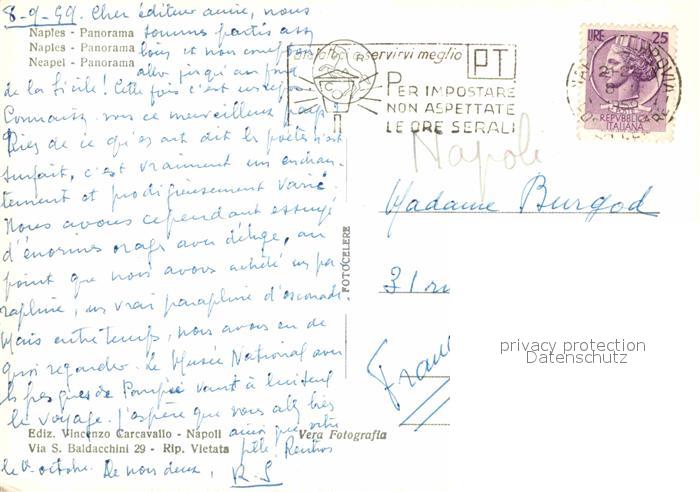 8-9-59. Cher éditeur ami, nous
Naples - Panorama sommes partis assez
Naples - Panorama loin et nous comptons
Neapel - Panorama aller jusqu'au fond
de la Sicile! Cette fois c'est un repos.
ce merveilleux pays?
Rien de ce qu'en ont dit les poètes n'est
surfait, c'est vraiment un enchan-
tement et prodigieusement varié.
Nous avons cependant essuyé
d'énormes orages avec déluge, au
point que nous avons acheté un pa-
rapluie, un vrai parapluie d'escouade.
Mais entre temps, nous avons eu de
quoi regarder. Le Musée National avec
les fresques de Pompéi vaut à lui seul
le voyage. J'espère que vous allez bien
Ediz. Vincenzo Carcavallo - Napoli ainsi que votre
Via S. Baldacchini 29 - Rip. Vietata fille. Rentrons
le 1er octobre. De nous deux, R.S
Vera Fotografia
FOTOCELERE
servirvi meglio
PT
PER IMPOSTARE
NON ASPETTATE
LE ORE SERALI
LIRE 25
REPVBBLICA
ITALIANA
1959
Napoli
Madame Burgod
31 ru
Franc
privacy protection
Datenschutz